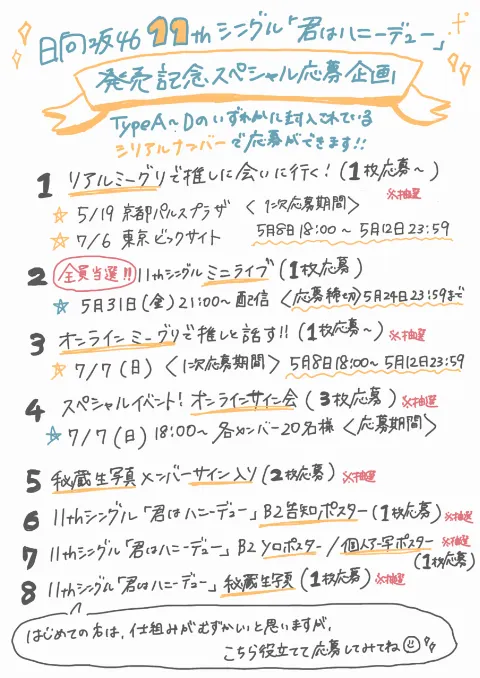 日向坂46 11thシングル「君はハニーデュー」
発売記念スペシャル応募企画
TypeA〜Dのいずれかに封入されている
シリアルナンバーで応募ができます!!
1 リアルミーグリで推しに会いに行く!(1枚応募〜)
※抽選
☆ 5/19 京都パルスプラザ 〈1次応募期間〉
☆ 7/6 東京ビックサイト 5月8日18:00〜5月12日23:59
2 全員当選!! 11thシングル ミニライブ(1枚応募)
☆ 5月31日(金)21:00〜配信〈応募締切〉5月24日23:59まで
3 オンラインミーグリで推しと話す!!(1枚応募〜)※抽選
☆ 7/7(日)〈1次応募期間〉5月8日18:00〜5月12日23:59
4 スペシャルイベント!オンラインサイン会(3枚応募)※抽選
☆ 7/7(日)18:00〜 各メンバー20名様〈応募期間〉
5 秘蔵生写真メンバーサイン入り(2枚応募)※抽選
6 11thシングル「君はハニーデュー」B2告知ポスター(1枚応募)※抽選
7 11thシングル「君はハニーデュー」B2ソロポスター/個人アー写ポスター※抽選
(1枚応募)
8 11thシングル「君はハニーデュー」秘蔵生写真(1枚応募)※抽選
はじめての方は、仕組みがむずかいと思いますが、
こちら役立てて応募してみてね